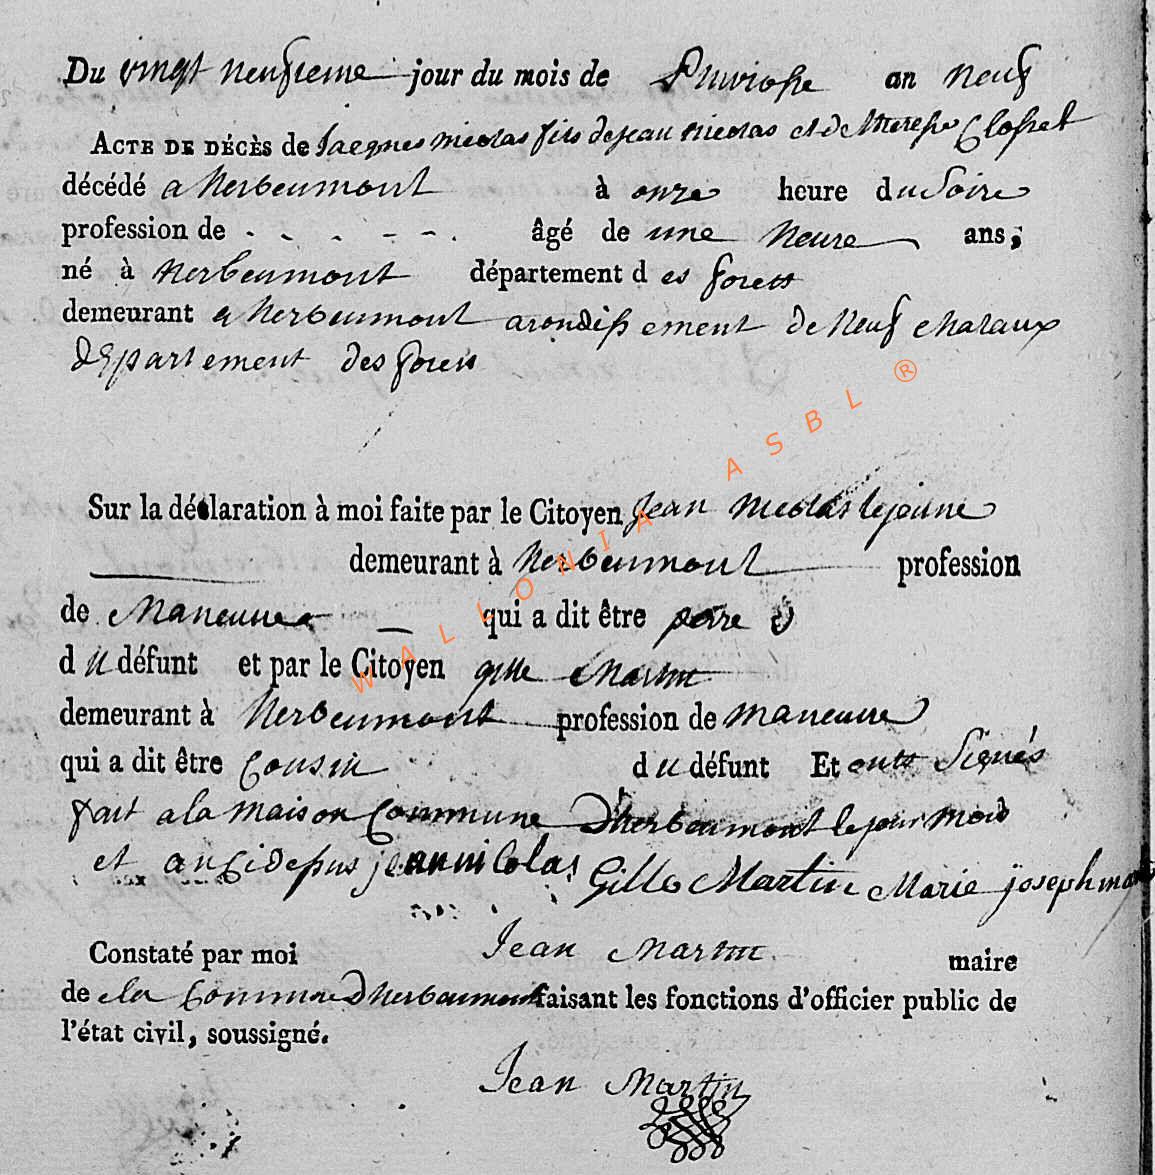 Du vingt neufieme jour du mois de Pluviosse an neuf
ACTE DE DÉCÈS de Jacques nicolas fils de jean nicolas et de therese Closset
décédé a herbeumont à onze heure du Soire
profession de - - - - - . âgé de une heure ans;
né à herbeumont département d es forets
demeurant a herbeumont arondissement de neuf chataux
departement des forets
Sur la déclaration à moi faite par le Citoyen jean nicolas lejeune
demeurant à herbeumont profession
de Maneuvre qui a dit être pere
du défunt et par le Citoyen gille Martin
demeurant à herbeumont profession de maneuvre
qui a dit être Cousin du défunt Et onts Signés
fait a la maison Commune D'herbeumont le jour mois
et an cidessus jean nicolas Gille Martin Marie joseph
Constaté par moi Jean Martin maire
de la Commune d'herbeumont faisant les fonctions d'officier public de
l'état civil, soussigné.
Jean Martin
WALLONIA ASBL ®